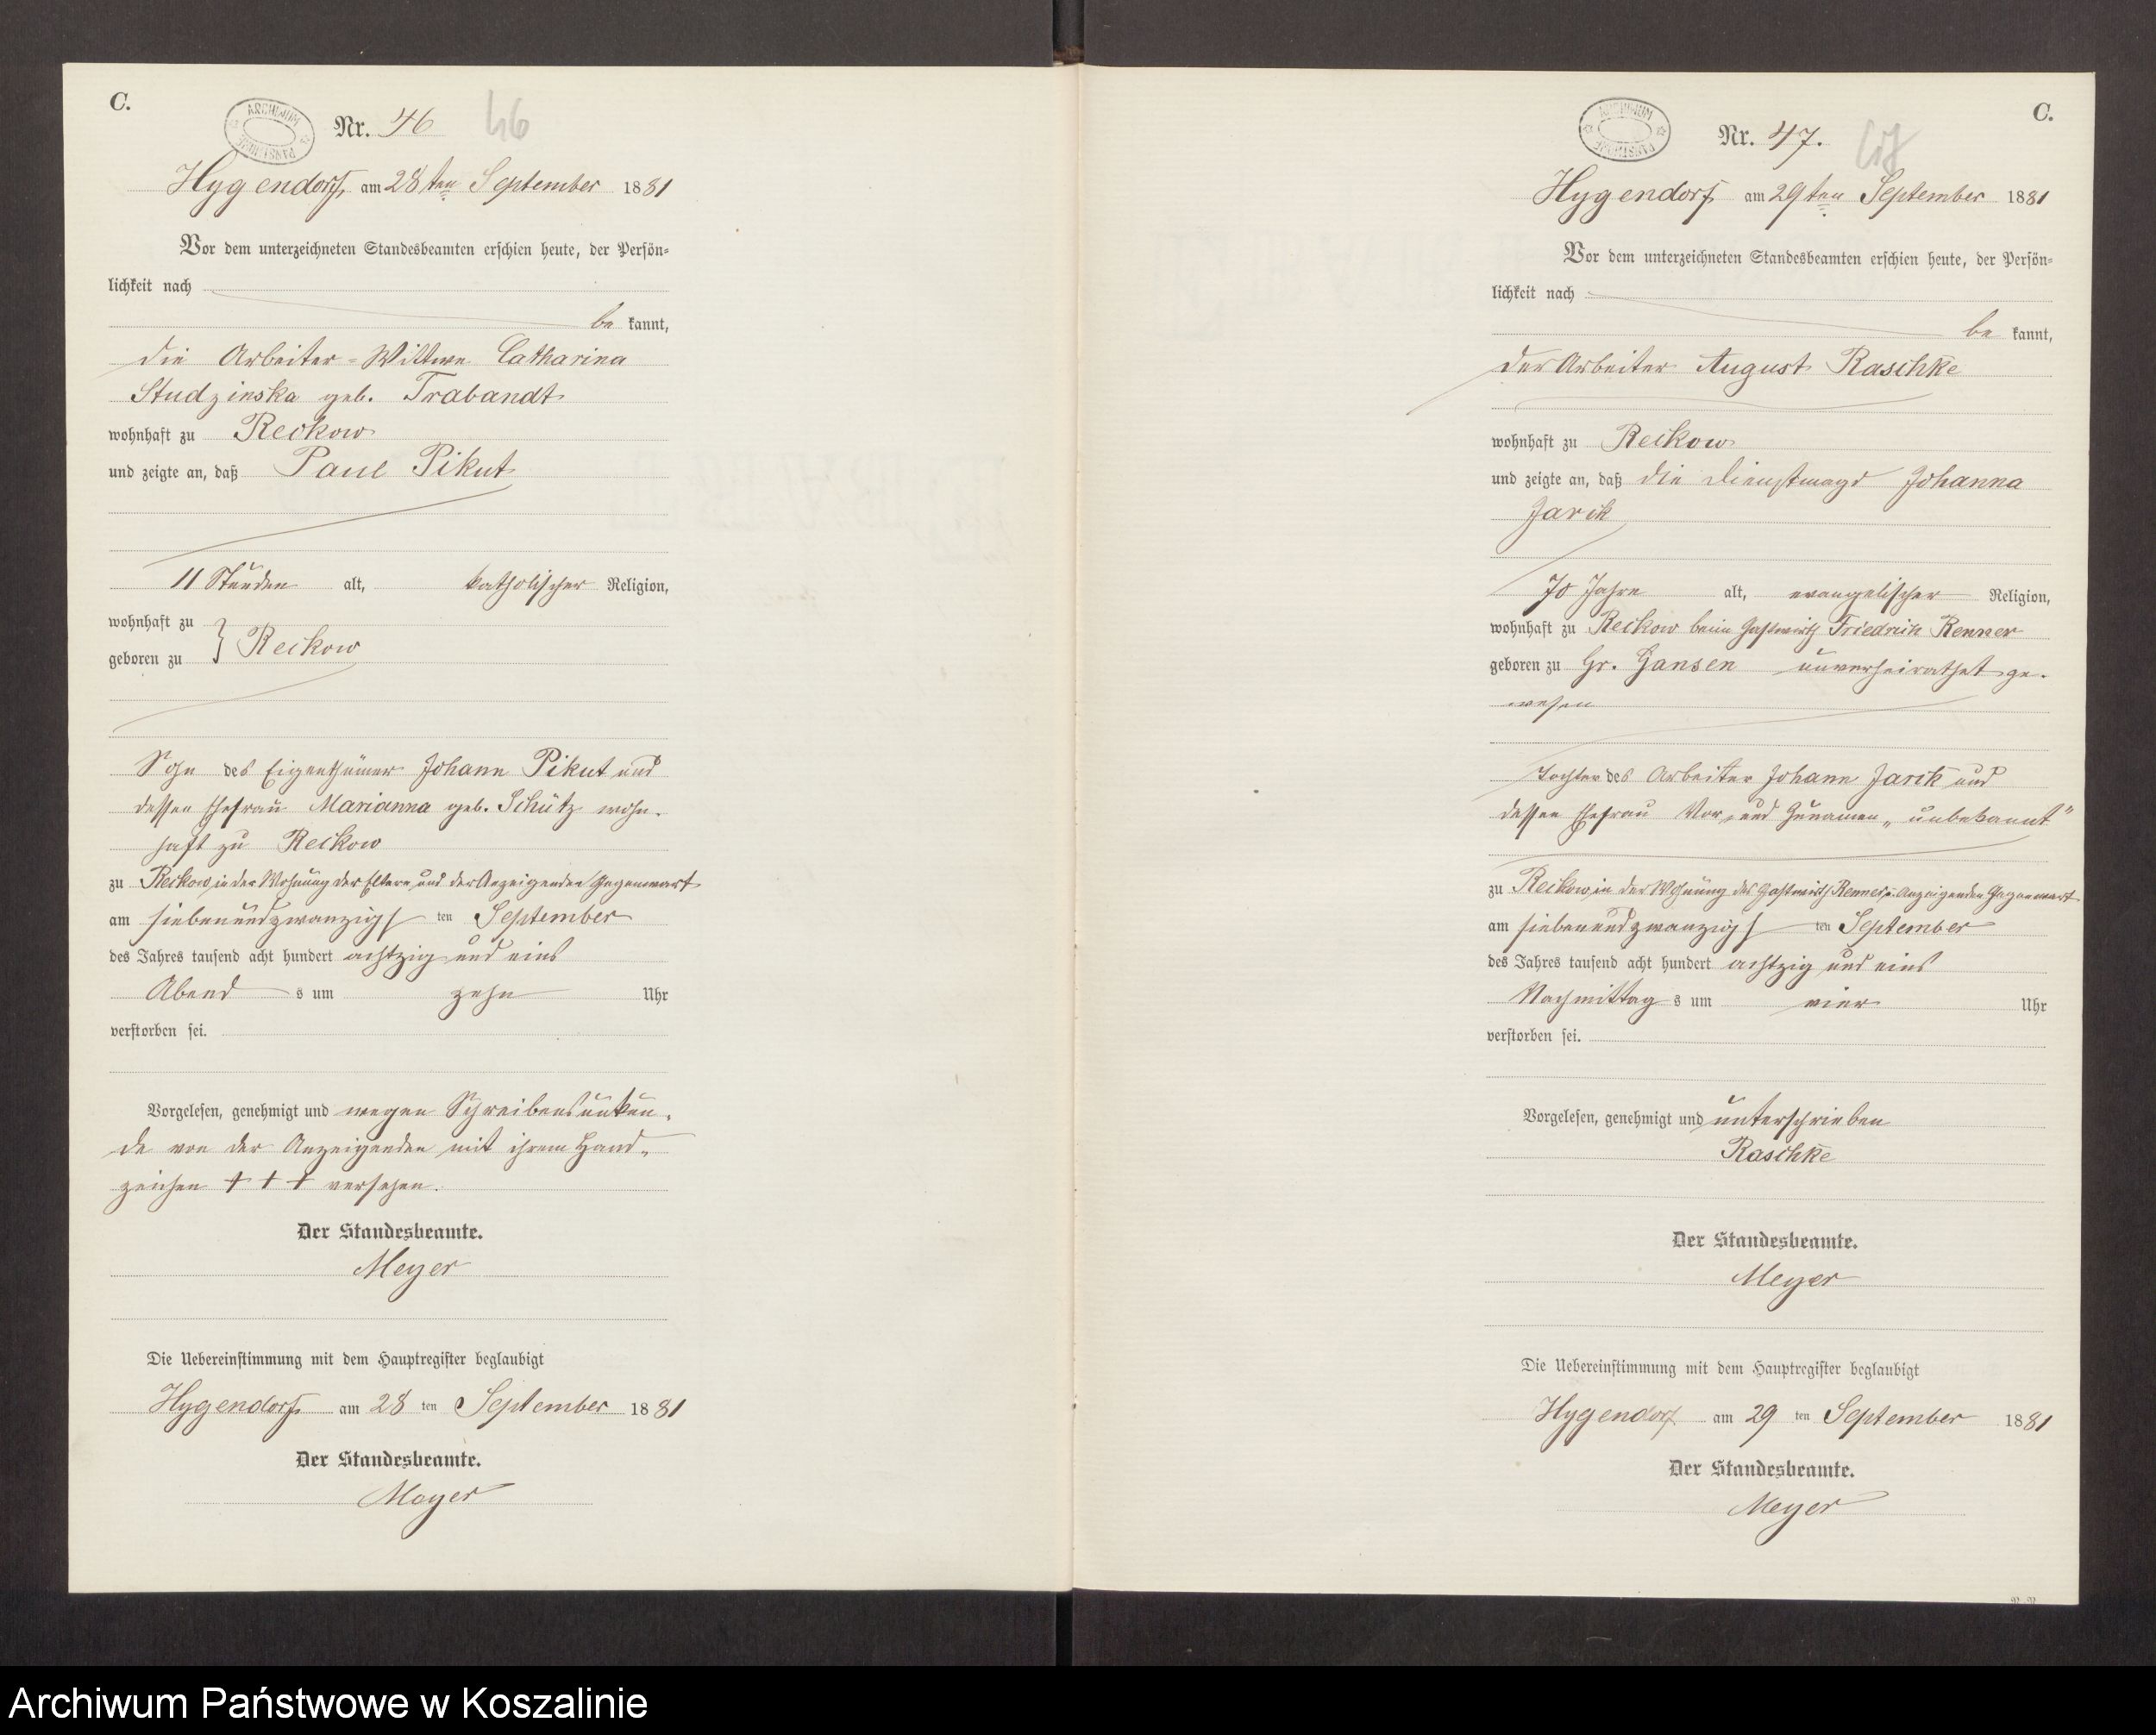 C.
ARCHIWUM PAŃSTWOWE
Nr. 46 46
Hygendorf, am 28ten September 1881
Vor dem unterzeichneten Standesbeamten erschien heute, der Persön-
lichkeit nach
be kannt,
die Arbeiter-Wittwe Catharina
Studzinska geb. Trabandt
wohnhaft zu Reckow
und zeigte an, daß Paul Pikut
11 Stunden alt, katholischer Religion,
wohnhaft zu
geboren zu } Reckow
Sohn des Eigenthümer Johann Pikut und
dessen Ehefrau Marianna geb. Schütz wohn-
haft zu Reckow
zu Reckow, in der Wohnung der Eltern und der Anzeigenden Gegenwart
am siebenundzwanzigs ten September
des Jahres tausend acht hundert achtzig und eins
Abend s um zehn Uhr
verstorben sei.
Vorgelesen, genehmigt und wegen Schreibensunkun-
de von der Anzeigenden mit ihrem Hand-
zeichen + + + versehen.
Der Standesbeamte.
Meyer
Die Uebereinstimmung mit dem Hauptregister beglaubigt
Hygendorf am 28 ten September 1881
Der Standesbeamte.
Meyer
C.
ARCHIWUM PAŃSTWOWE
Nr. 47. 47
Hygendorf am 29ten September 1881
Vor dem unterzeichneten Standesbeamten erschien heute, der Persön-
lichkeit nach
be kannt,
der Arbeiter August Raschke
wohnhaft zu Reckow
und zeigte an, daß die Dienstmagd Johanna
Jarik
70 Jahre alt, evangelischer Religion,
wohnhaft zu Reckow beim Gastwirth Friedrich Renner
geboren zu Gr. Gansen unverheirathet ge-
wesen
Tochter des Arbeiter Johann Jarik und
dessen Ehefrau Vor- und Zunamen „unbekannt"
zu Reckow, in der Wohnung des Gastwirth Renner u. Anzeigenden Gegenwart
am siebenundzwanzigs ten September
des Jahres tausend acht hundert achtzig und eins
Nachmittag s um vier Uhr
verstorben sei.
Vorgelesen, genehmigt und unterschrieben
Raschke
Der Standesbeamte.
Meyer
Die Uebereinstimmung mit dem Hauptregister beglaubigt
Hygendorf am 29 ten September 1881
Der Standesbeamte.
Meyer
Archiwum Państwowe w Koszalinie